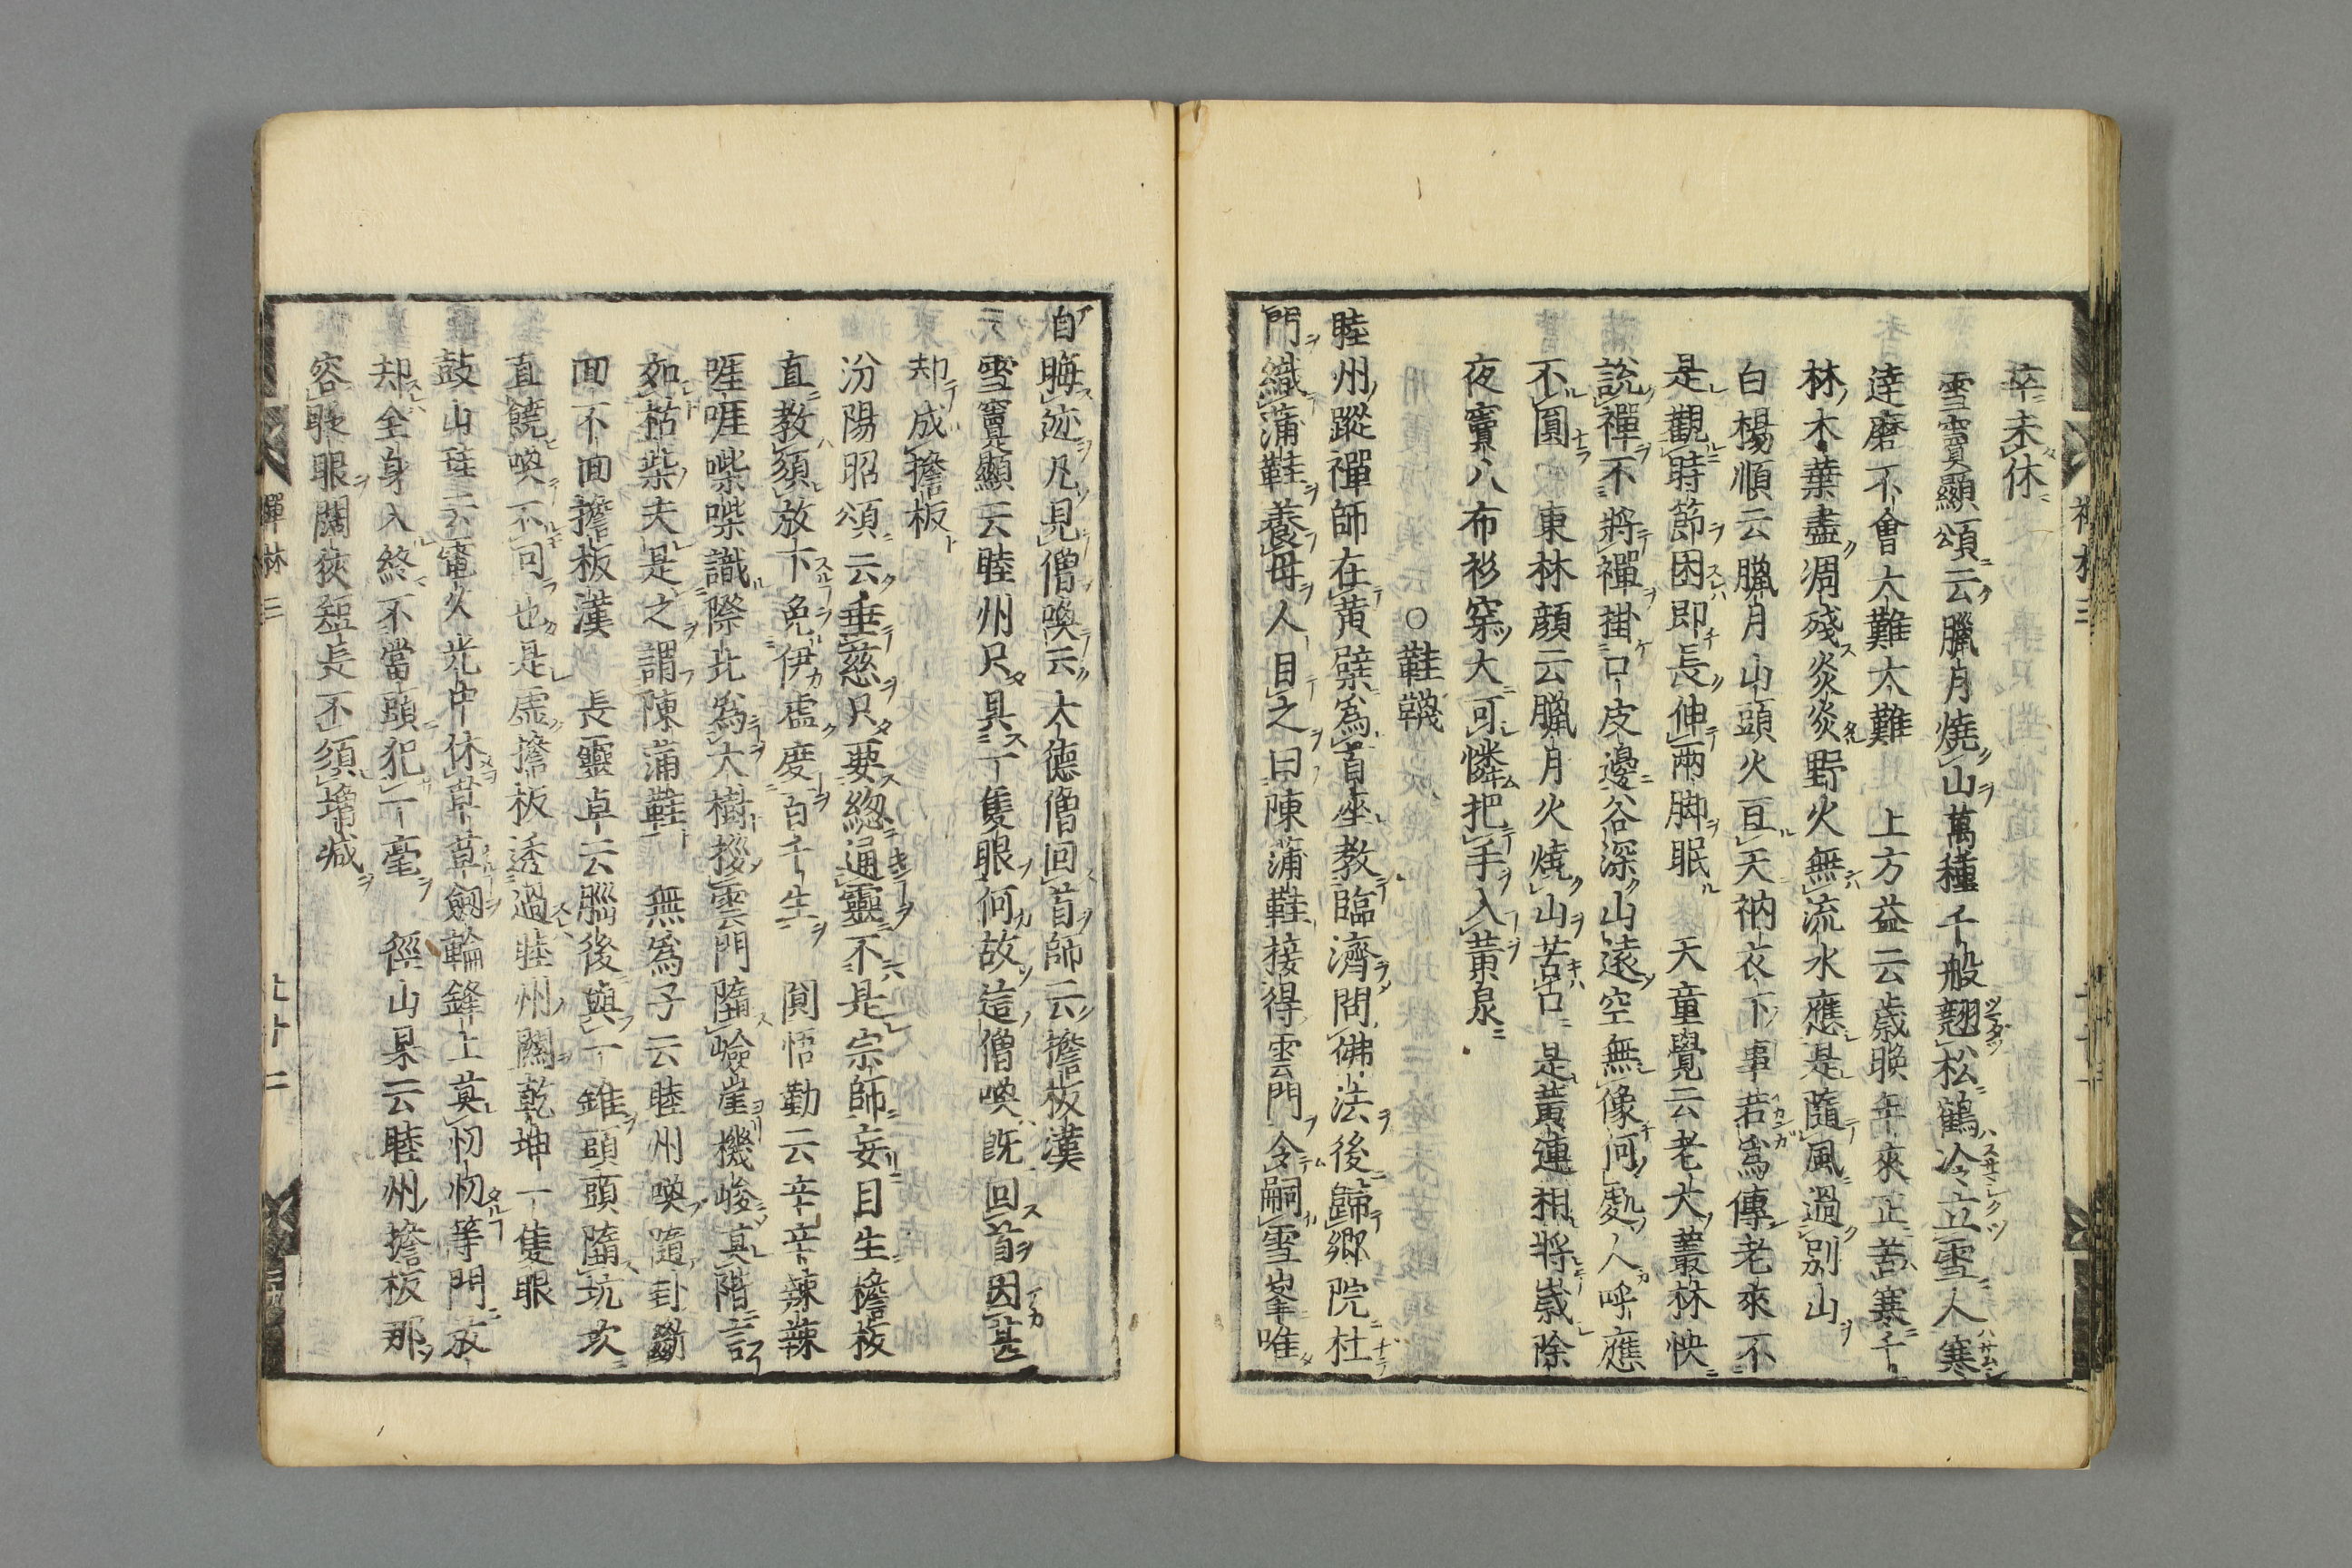 卒未休
雪竇顯頌云臘月燒山萬種千般翹松鶴冷立雪人寒
達磨不會大難大難　上方益云歲晚年來正苦寒千
林木葉盡凋殘炎炎野火無流水應是隨風過別山
白楊順云臘月山頭火亘天衲衣下事若爲傳老來不
是觀時節困即長伸兩脚眠　天童覺云老大叢林怏
說禪不將禪掛口皮邊谷深山遠空無像何處人呼應
不圓　東林顏云臘月火燒山苦口是黃連相將歲除
夜竇八布衫穿大可憐把手入黃泉
○鞋韈
睦州蹤禪師在黃檗爲首座教臨濟問佛法後歸鄉院杜
門織蒲鞋養母人目之曰陳蒲鞋接得雲門令嗣雪峯唯
自晦迹凡見僧喚云大德僧回首師云擔板漢
雪竇顯云睦州只具一隻眼何故這僧喚既回首因甚
却成擔板
汾陽昭頌云垂慈只要總通靈不是宗師妄目生擔板
直教須放下免伊虛度百千生　圓悟勤云辛辛辣辣
啀啀喍喍識際北爲大樹拶雲門隨嶮崖機峻眞階言
如枯柴夫是之謂陳蒲鞋　無爲子云睦州喚隨卦斷
回不回擔板漢　長靈卓云腦後與一錐頭頭隨坑坎
直饒喚不回也是虛擔板透過睦州關乾坤一隻眼
鼓山珪云電火光中休草草劍輪鋒上莫忉忉等門放
却全身入終不當頭犯一毫　徑山杲云睦州擔板那
容眨眼闊狹短長不須增減
禪林三